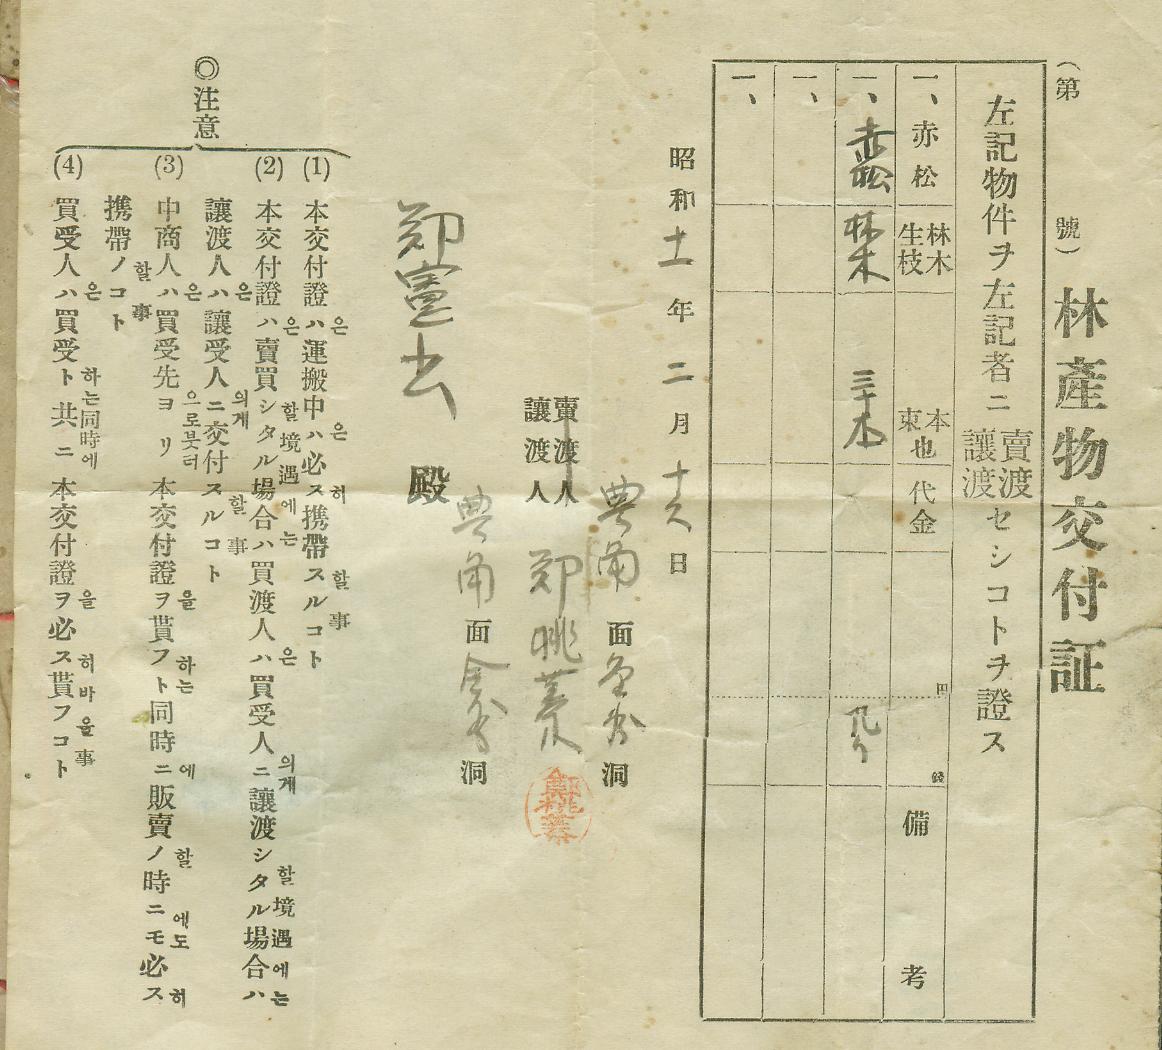 (第 號) 林産物交付証
左記物件ヲ左記者ニ賣渡讓渡セシコトヲ證ス
一、赤松 林木生枝 本束也 代金 円 錢 備考
一、赤松 林木 三十本
一、
一、
昭和十一年二月十六日
豊南面 洞
賣渡人
讓渡人 鄭
豊南面 洞
鄭憲 殿
◎注意
(1) 本交付證ハ運搬中ハ必ス携帶スルコト
은 은 히 할事
(2) 本交付證ハ賣買シタル場合ハ買渡人ハ買受人ニ讓渡シタル場合ハ
은 할境遇에는 은 의게 할境遇에는
讓渡人ハ讓受人ニ交付スルコト
은 의게 할事
(3) 中商人ハ買受先ヨリ本交付證ヲ貰フト同時ニ販賣ノ時ニモ必ス
은 으로붓터 을 하는 에 할 에도 히
携帶ノコト
할事
(4) 買受人ハ買受ト共ニ本交付證ヲ必ス貰フコト
은 하는同時에 을 히 바울事